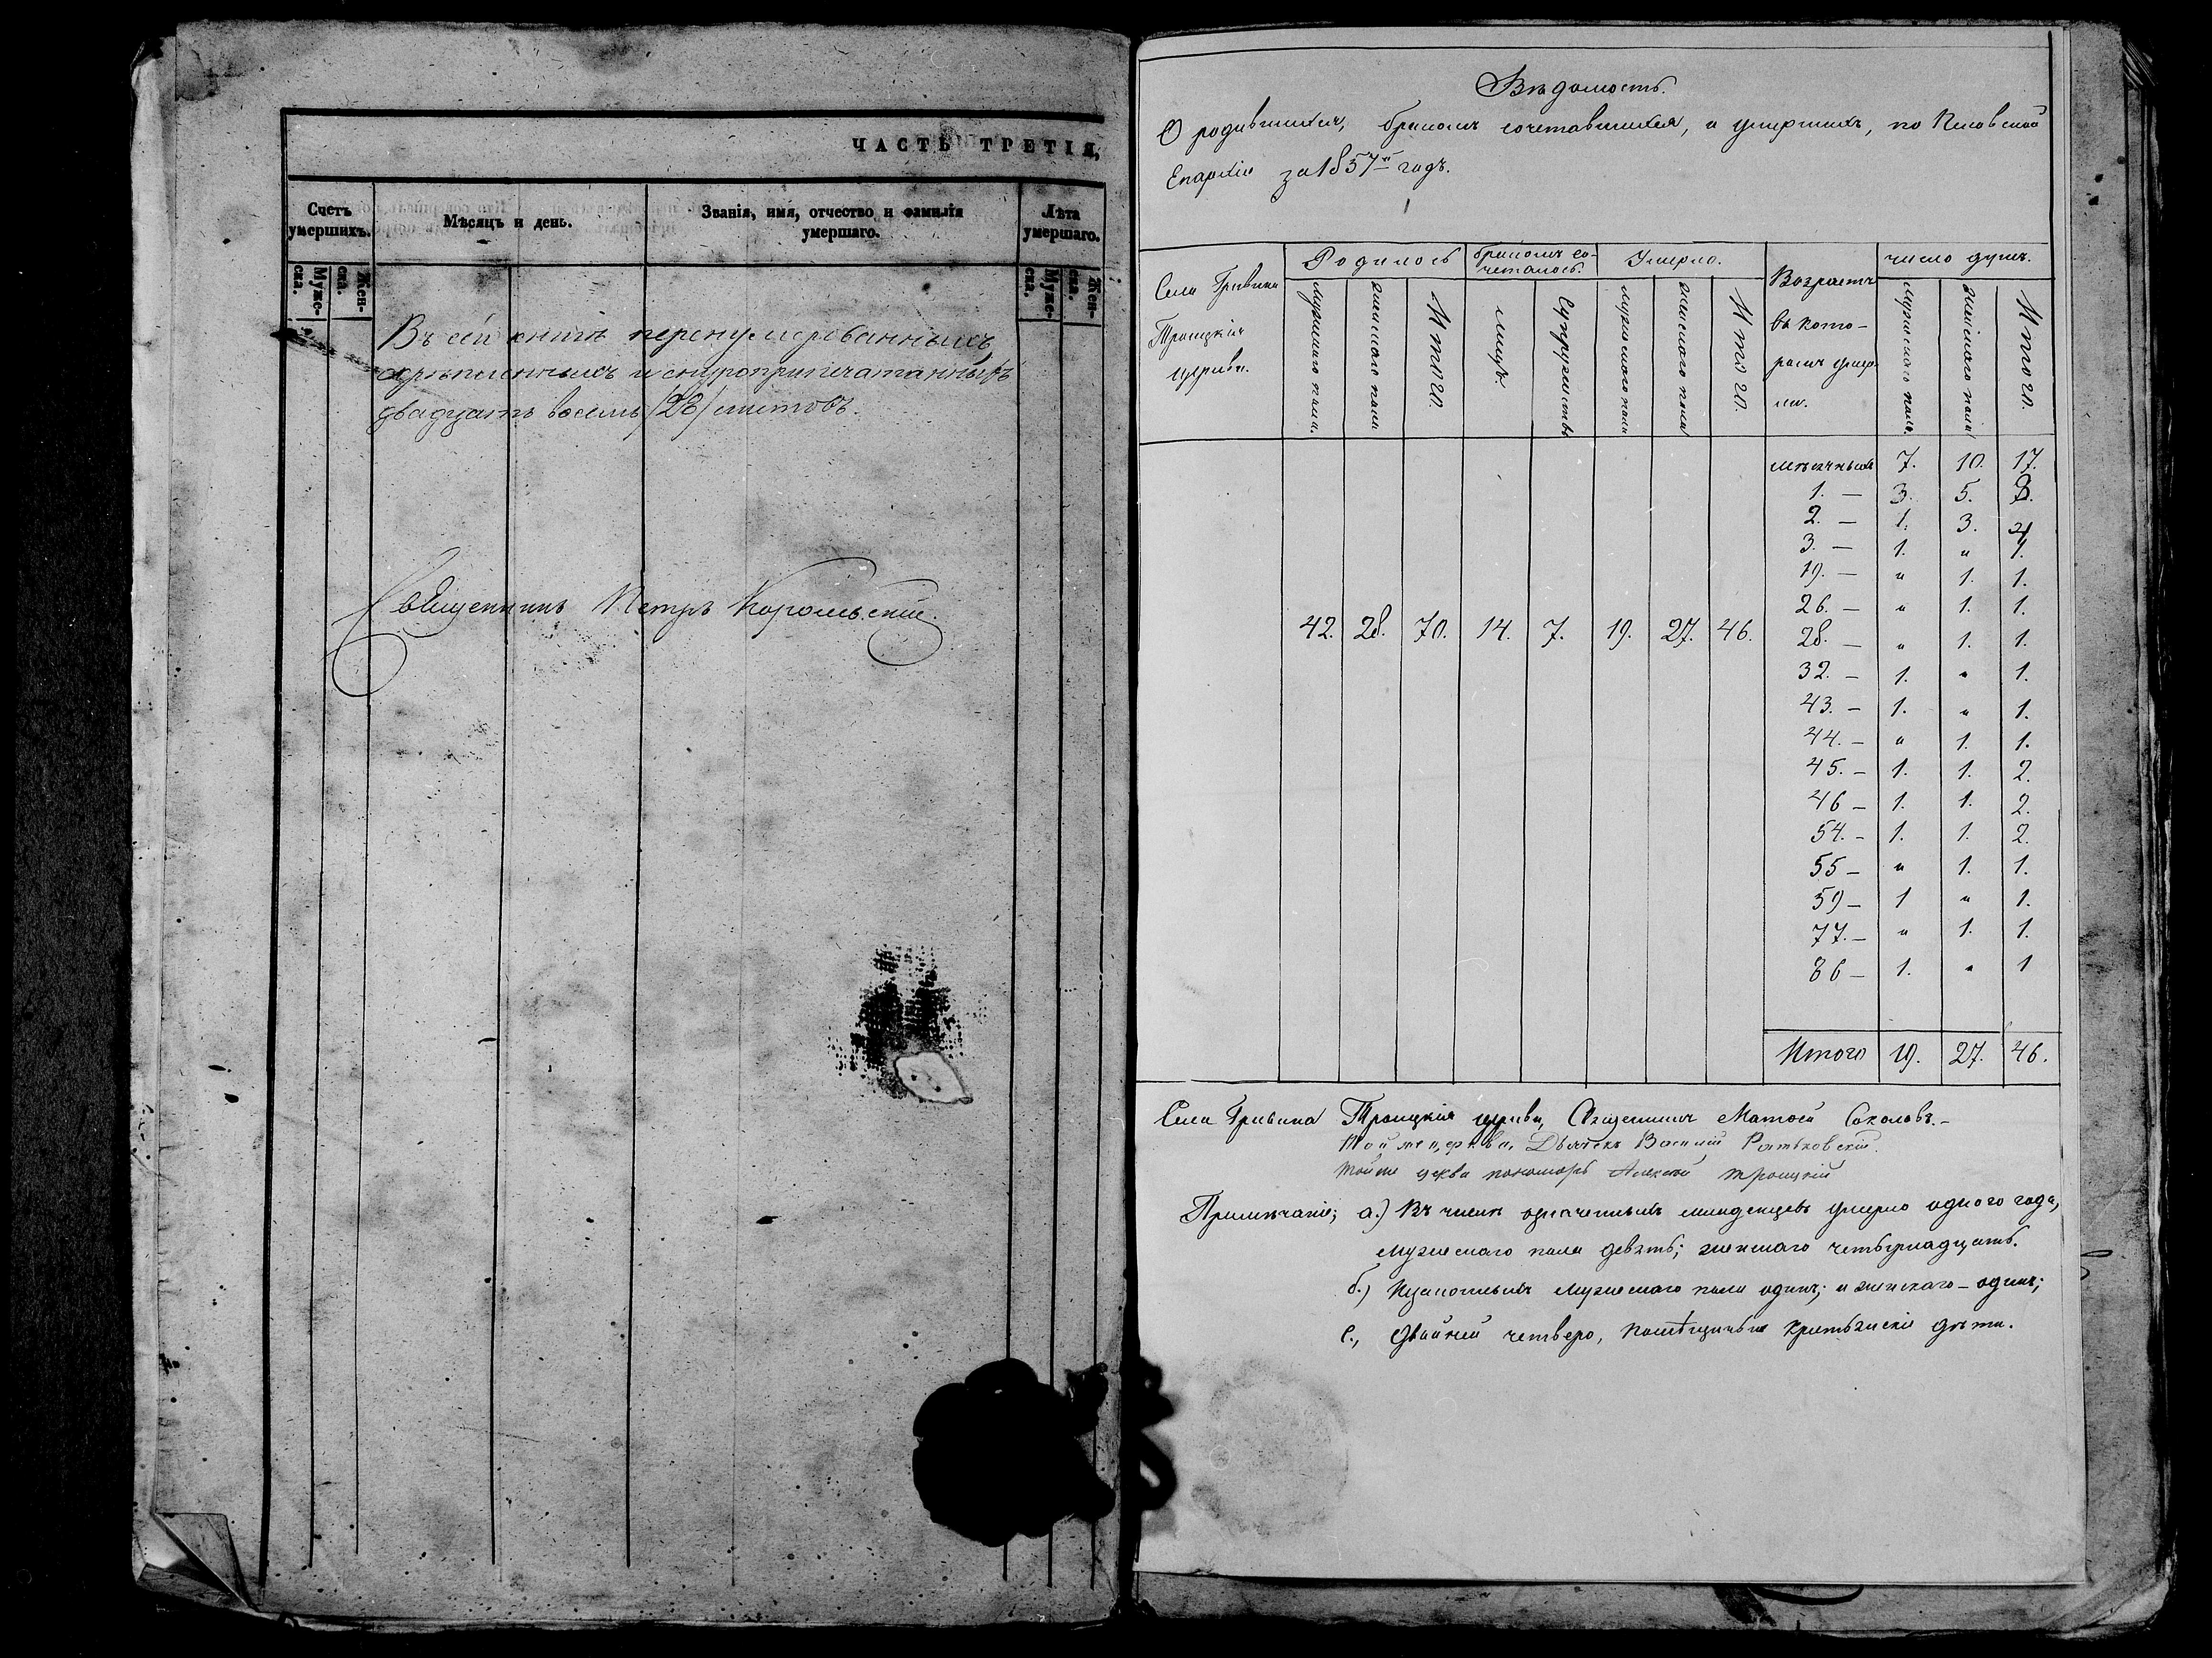 ЧАСТЬ ТРЕТІЯ,
Счетъ умершихъ.
Мѣсяцъ и день.
Званія, имя, отчество и фамилія умершаго.
Лѣта умершаго.
Муже-ска.
Жен-ска.
Муже-ска.
Жен-ска.
Въ сей книгѣ перенумерованныхъ
скрѣпленныхъ и снуроприпечатанныхъ
двадцать восемь /28/ листовъ.
Священникъ Петръ Карольскій.
Вѣдомость.
О родившихся, бракомъ сочетавшихся, и умершихъ, по Псковской
Епархіи за 1857й годъ.
Села Гривина
Троицкія
церкви.
Родилось
бракомъ со-
четалось.
Умерло.
Возрастъ
въ кото-
ромъ умер-
ли.
число душъ.
мужескаго пола.
женскаго пола
Итого.
лицъ.
Супружествъ
мужескаго пола
женскаго пола
Итого.
мужескаго пола.
женскаго пола
Итого.
мѣсячныхъ 7. 10. 17.
1. — 3. 5. 8.
2. — 1. 3. 4
3. — 1. " 1.
19. — " 1. 1.
26. — " 1. 1.
42. 28. 70. 14. 7. 19. 27. 46. 28. — " 1. 1.
32. — 1. " 1.
43. — 1. " 1.
44. — " 1. 1.
45. — 1. 1. 2.
46 — 1. 1. 2.
54. — 1. 1. 2.
55 — " 1. 1.
59 — 1 " 1.
77. — " 1. 1.
86 — 1. " 1
Итого 19. 27. 46.
Села Гривина Троицкія церкви, Священникъ Матѳей Соколовъ. —
Той же церкви, Дьячекъ Василій Ратьковскій.
Тойже церкви пономарь Алексей Троицкій
Примѣчаніе; а.) Въ числѣ означенныхъ младенцевъ умерло одного года,
мужескаго пола девять; женскаго четырнадцать.
б.) мужескаго пола одинъ; и женскаго — одинъ;
с., Двойней четверо, помѣщичьи крестьянскіе дѣти.